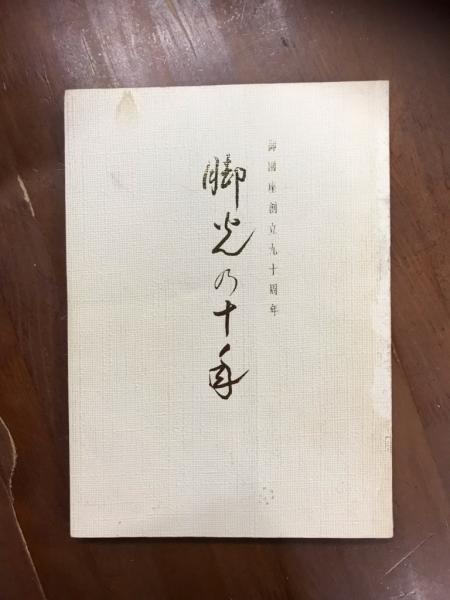 御園座創立九十周年
脚光の十年